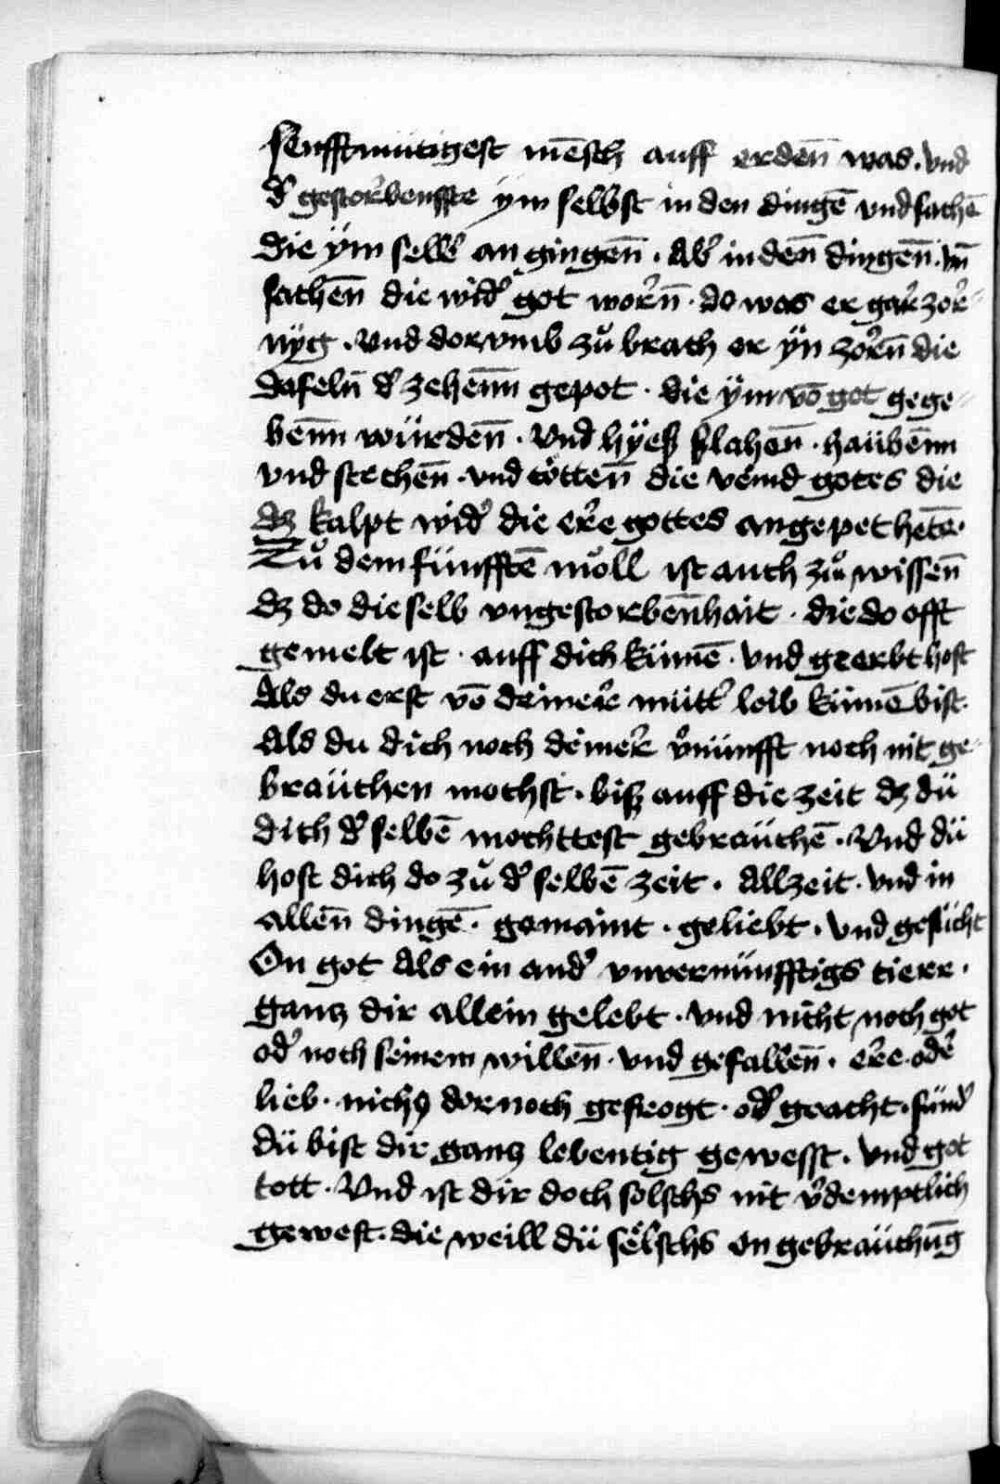 senfftmütigest mēsch auff erden̄ was. Vnd
d' gestorbenste ym selbst in den dingē vnd sachē
die ÿm selb' an gingen̄. Ab' in den̄ dingen̄. vn̄
sachen̄ die wid' got worn̄. do was er gar zor=
nÿg. Vnd dorvmb zů brach er ÿn zorn̄ die
dafeln̄ d' zehenn̄ gepot. die ÿm vō got gege=
benn̄ würden̄. Vnd hÿeß slahen̄. haübenn̄
vnd stechen̄. vnd tötten̄ die veind gotes die
dz kalpt wid' die ere gottes angepet hetē.
Zů dem fünfftē moll ist auch zů wissen̄
dz do die selb vngestorben̄hait. die do offt
gemelt ist. auff dich kümē. vnd geerbt host
Als du erst vō deiner mütt' leib kümē bist.
Als du dich noch deiner v'nünfft noch nit ge=
braüchen mochst. biß auff die zeit dz dü
dich d' selbē mochttest gebraüchē. Vnd dü
host dich do zů d' selbē zeit. Allzeit. vnd in
allen̄ dingē. gemaint. geliebt. Vnd gesücht
On got Als ein and' vnvernünfftigs tierr.
gantz dir allein gelebt. vnd nicht noch got
od' noch seinem willen̄. vnd gefallen̄. ere. oder
lieb. nichs dornoch gefrogt. od' geacht. sünd'
dü bist dir gantz lebentig gewesst. Vnd got
tott. Vnd ist dir doch solschs nit v'demptlich
gewest. die weill dü sölschs on gebraüchūg